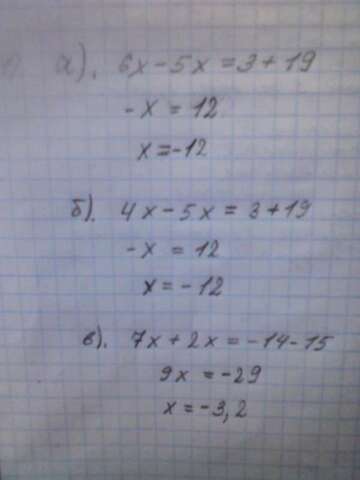 а). 6x - 5x = 3 + 19
- x = 12
x = -12
б). 4x - 5x = 3 + 19
- x = 12
x = - 12
в). 7x + 2x = -14 - 15
9x = -29
x = -3,2